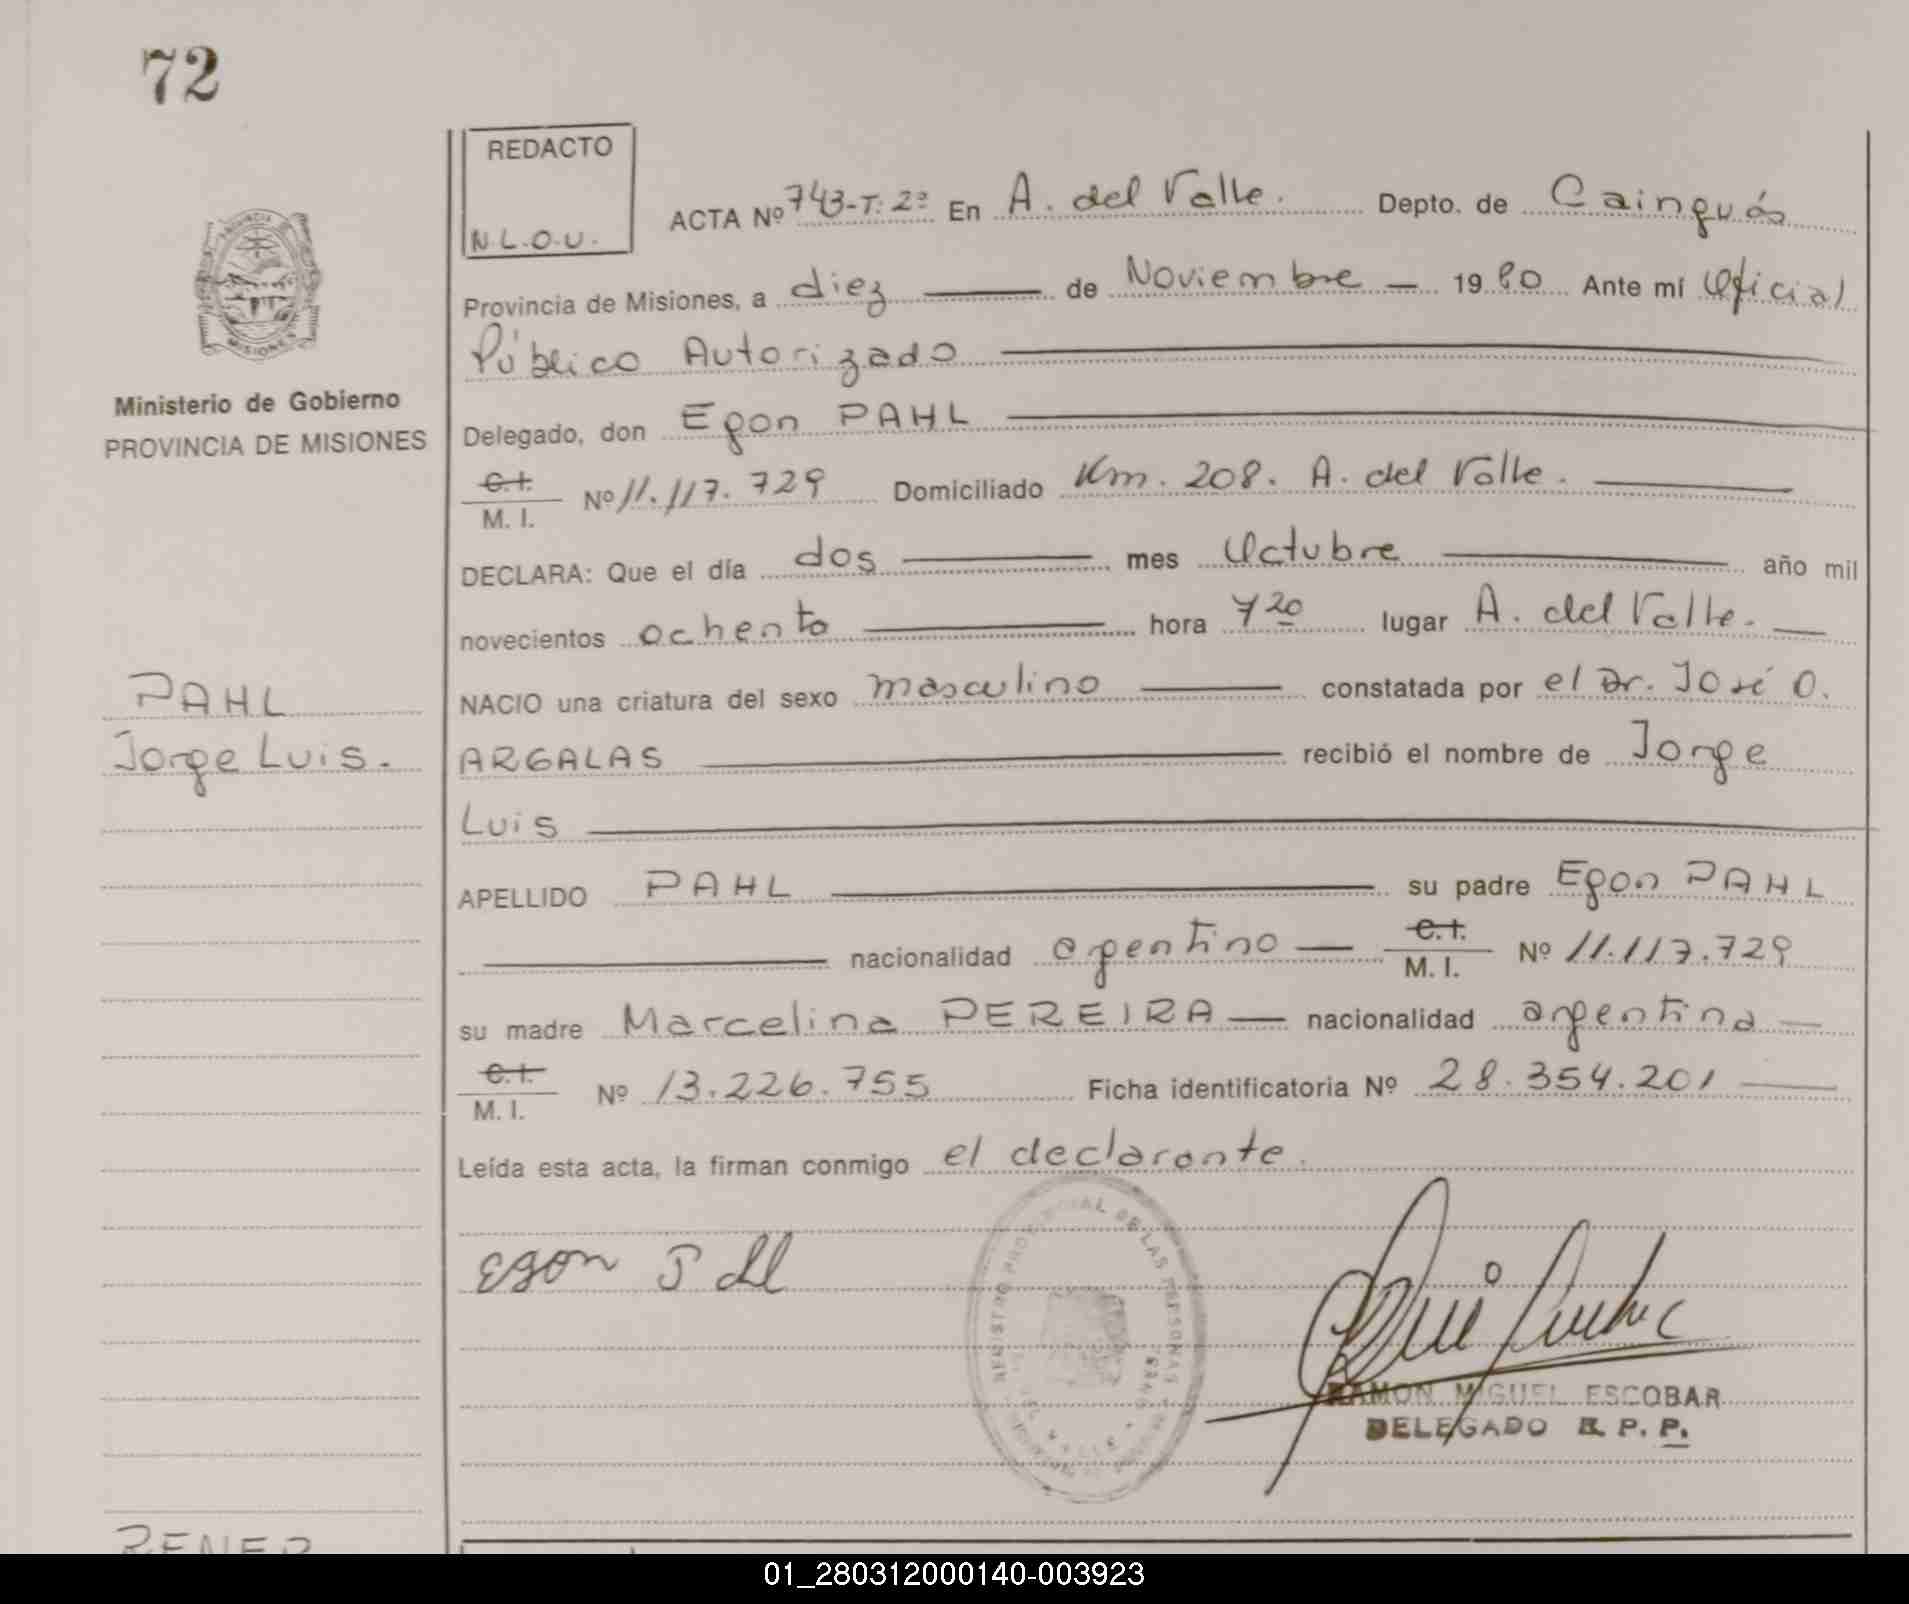 72
REDACTO
N.L.O.U.
ACTA Nº 743-T: 2º En A. del Valle. Depto. de Cainguás
Provincia de Misiones, a diez de Noviembre 1980 Ante mí Oficial
Público Autorizado
Delegado, don Egon PAHL
C.I.
M. I. Nº 11.117.729 Domiciliado Km. 208. A. del Valle.
DECLARA: Que el día dos mes Octubre año mil
novecientos ochenta hora 7 20 lugar A. del Valle.
NACIO una criatura del sexo masculino constatada por el Dr. José O.
ARGALAS recibió el nombre de Jorge
Luis
APELLIDO PAHL su padre Egon PAHL
nacionalidad argentino C.I. M. I. Nº 11.117.729
su madre Marcelina PEREIRA nacionalidad argentina
C.I.
M. I. Nº 13.226.755 Ficha identificatoria Nº 28.354.201
Leída esta acta, la firman conmigo el declarante.
Egon Pahl
REGISTRO PROVINCIAL DE LAS PERSONAS
DEL VALLE
RAMON MIGUEL ESCOBAR
DELEGADO R. P. P.
PROVINCIA
MISIONES
Ministerio de Gobierno
PROVINCIA DE MISIONES
PAHL
Jorge Luis.
01_280312000140-003923